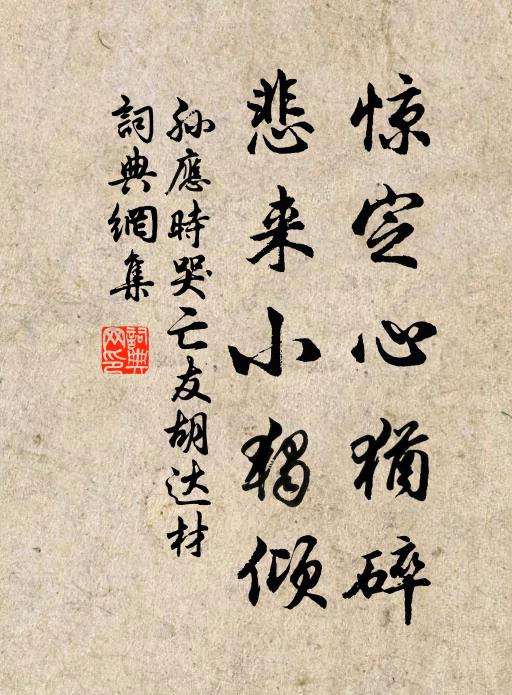 惊定心猶碎
悲来小獨倾
孫應時哭亡友胡达材
詞典網集
詞典
网印